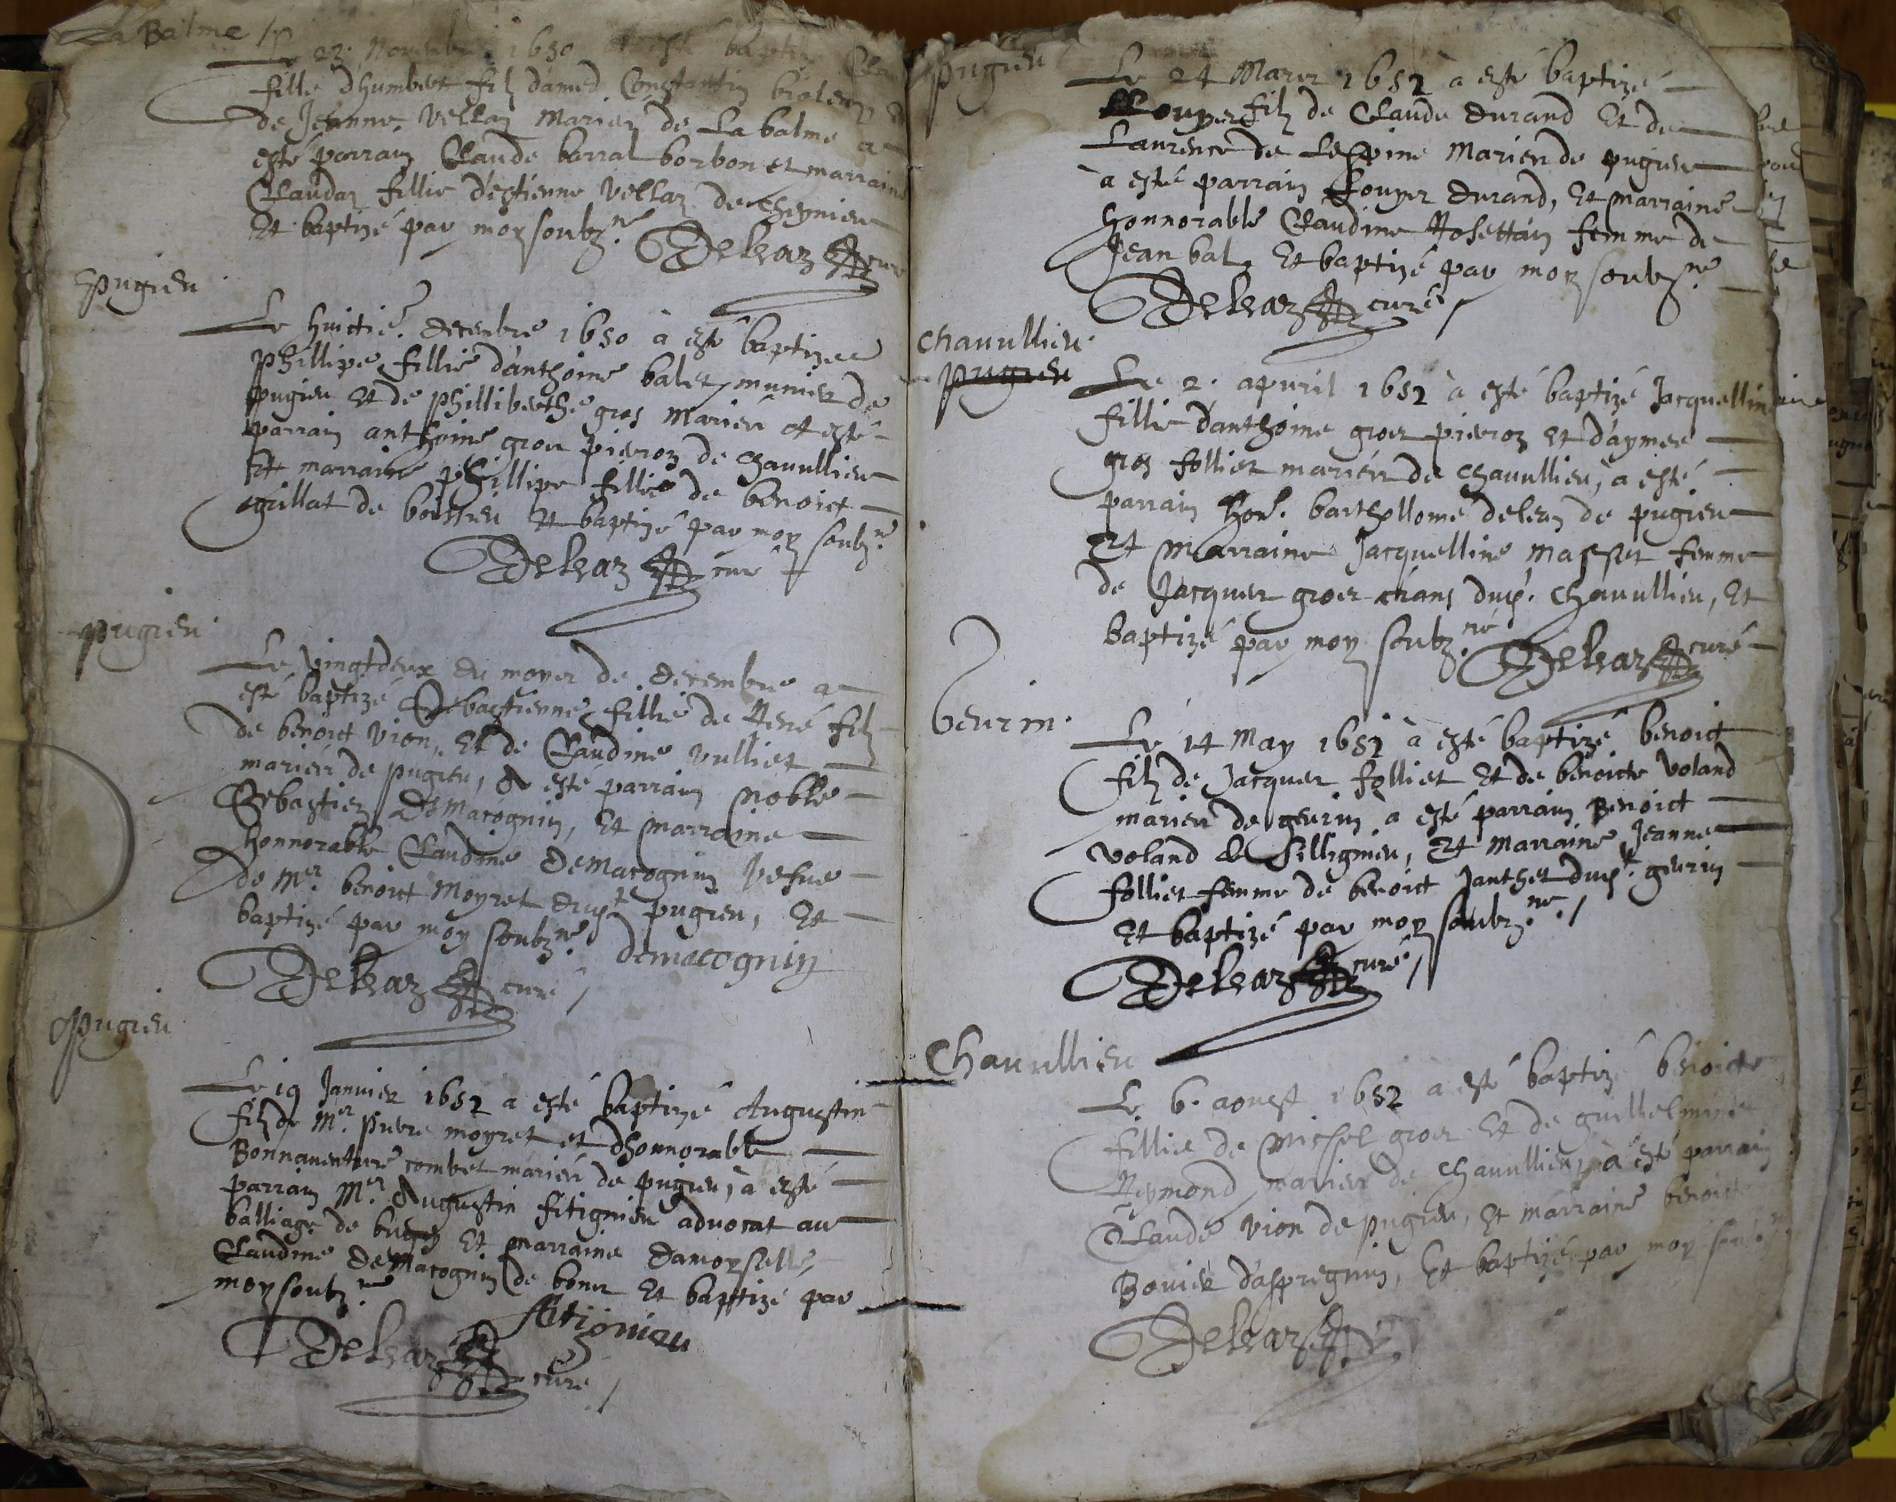 La Balme
Le 23. Novembre 1650 a esté baptizé
fille dhumbert filz damed Constantin
de Jeanne Vellaz Mariez de La balme a
esté parrain Claude barral borbon et marraine
Claudaz fillie d'estienne Vellaz de cheynieu
Et baptizé par moy soubz.né Delvaz curé
pugieu
Le huictié. decembre 1650 à esté baptizee
Phillipe fillie d'anthoine balet munier de
pugieu Et de Philliberthe gros Mariér A esté
parrain anthoine groer pierroz de Chavullieu
Et marraine phillipe fillie de benoict
Grillat de boissieu Et baptizé par moy soubz.né
Delvaz curé
pugieu
Le Vingtdeux du moyer de decembre a
esté baptizé Sebastienne fillie de René filz
de benoict Vion, Et de Claudine Vulliet
mariér de pugieu, A esté parrain Noble
Sebastien DeMacognin, Et Marraine
honnorable Claudine DeMacognin Vefve
de Mer. benoict Moyret dupt pugieu, Et
baptizé par moy soubz.né demacognin
Delvaz curé
Pugieu
Le 19 Janvier 1652 a esté baptizé Augustin
filz de Mer. pierre moyret et dhonnorable
Bonnaventure combet mariér de pugieu, à esté
parrain Mer. Augustin fitignieu advocat au
balliage de bugey Et marraine damoyselle
Claudine DeMacognin de boner Et baptizé par
moy soubz.né fitignieu
Delvaz curé
pugieu
Le 24 Marer 1652 à esté baptizé
Louyer filz de Claude durand Et de
Laurence de Lespine Mariér de pugieu
à esté parrain Louyer durand, Et marraine
honnorable Claudine Rosettan femme de
Jean bal. Et baptizé par moy soubz.né
Delvaz curé
Chavullieu
pugieu
Le 2. apvril 1652 à esté baptizé Jacquelline
fillie d'anthoine groer pierroz Et d'aymee
groz follier mariér de Chavullieu, a esté
parrain hon. barthollome delern de pugieu
Et Marraine Jacquelline Masset femme
de Jacquer groer dup. Chavullieu, Et
baptizé par moy soubz.né Delvaz curé
Gevrin
Le 14 May 1652 à esté baptizé benoict
filz de Jacquer folliet Et de benoicte Voland
mariér de gevrin a esté parrain Benoict
Voland de Sillignieu, Et Marraine Jeanne
folliet femme de benoict Janthet dup.t gevrin
Et baptizé par moy soubz.né
Delvaz curé
Chavullieu
Le 6. aoust 1652 a esté baptizé benoicte
fillie de Michel groer Et de guillelmine
Reymond mariér de chavullieu, à esté parrain
Claude Vion de pugieu, Et marraine benoicte
Bovier d'aspregnin, Et baptizé par moy
Delvaz